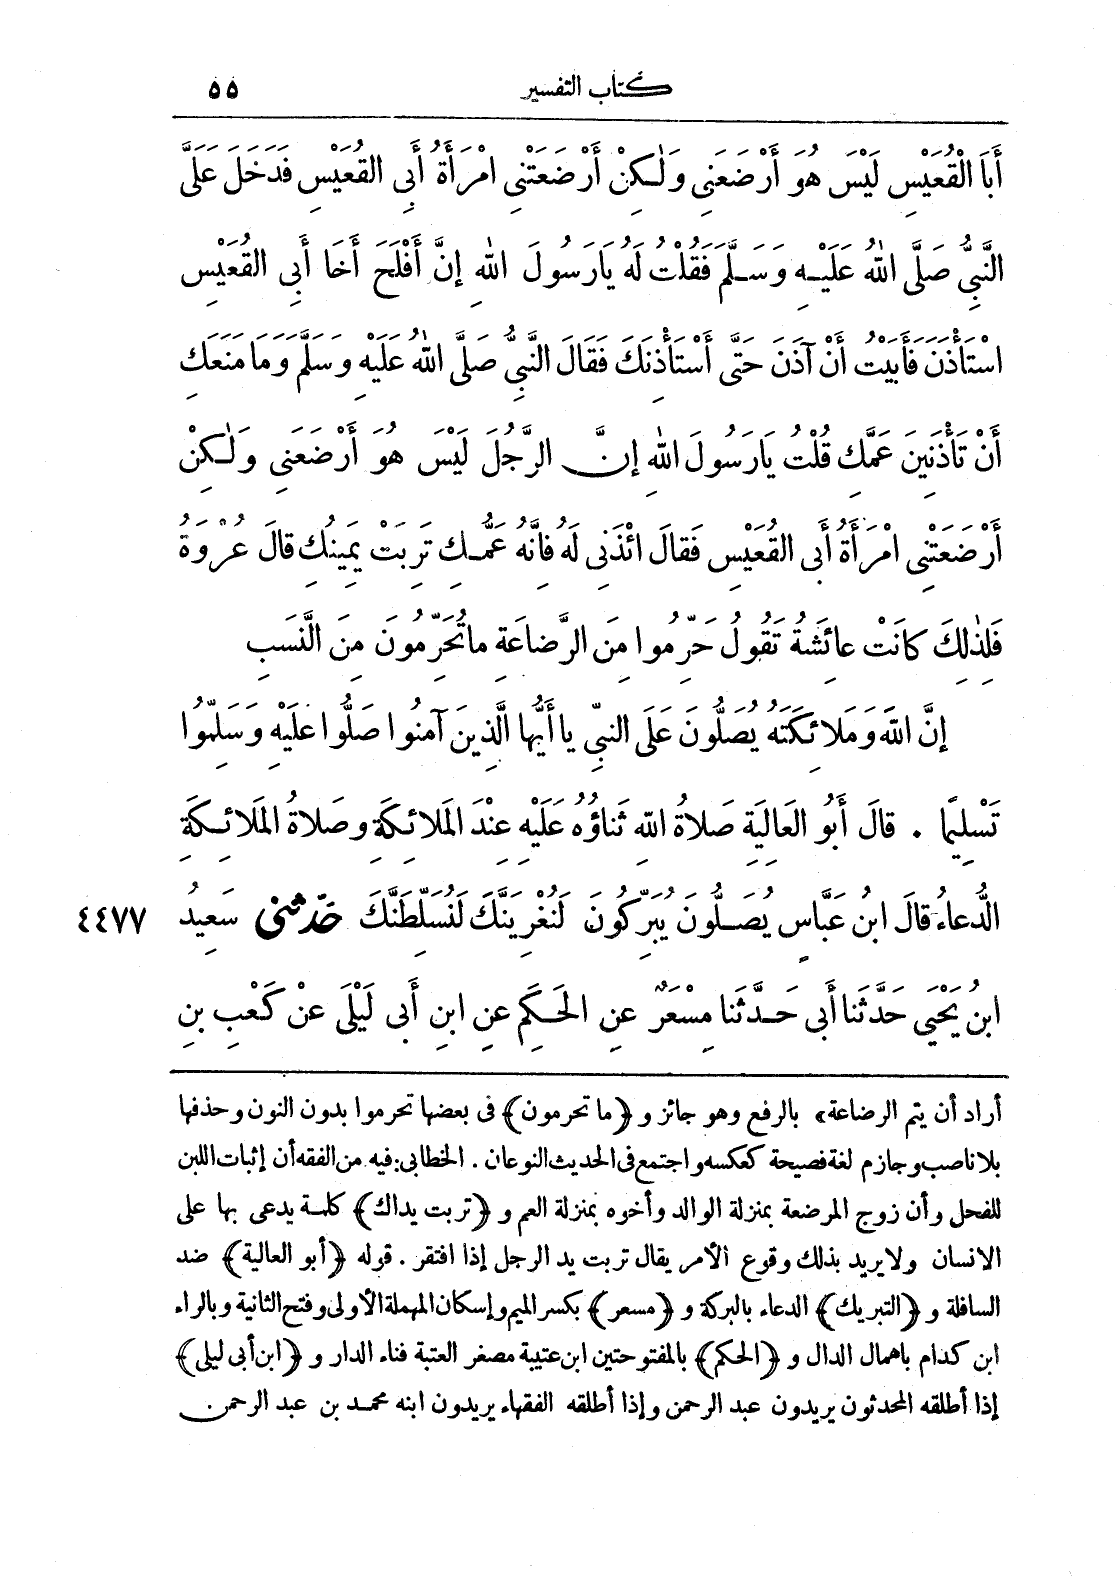 كتاب التفسير ٥٥
أَبَا الْقُعَيْسِ لَيْسَ هُوَ أَرْضَعَنِي وَلٰكِنْ أَرْضَعَتْنِي امْرَأَةُ أَبِي القُعَيْسِ فَدَخَلَ عَلَىَّ
النَّبِيُّ صَلَّى اللهُ عَلَيْهِ وَسَلَّمَ فَقُلْتُ لَهُ يَارَسُولَ اللهِ إِنَّ أَفْلَحَ أَخَا أَبِي القُعَيْسِ
اسْتَأْذَنَ فَأَبَيْتُ أَنْ آذَنَ حَتَّى أَسْتَأْذِنَكَ فَقَالَ النَّبِيُّ صَلَّى اللهُ عَلَيْهِ وَسَلَّمَ وَمَا مَنَعَكِ
أَنْ تَأْذَنِينَ عَمَّكِ قُلْتُ يَارَسُولَ اللهِ إِنَّ الرَّجُلَ لَيْسَ هُوَ أَرْضَعَنِي وَلٰكِنْ
أَرْضَعَتْنِي امْرَأَةُ أَبِي القُعَيْسِ فَقَالَ ائْذَنِي لَهُ فَإِنَّهُ عَمُّكِ تَرِبَتْ يَمِينُكِ قَالَ عُرْوَةُ
فَلِذٰلِكَ كَانَتْ عَائِشَةُ تَقُولُ حَرِّمُوا مِنَ الرَّضَاعَةِ مَاتُحَرِّمُونَ مِنَ النَّسَبِ
إِنَّ اللهَ وَمَلَائِكَتَهُ يُصَلُّونَ عَلَى النَّبِيِّ يَا أَيُّهَا الَّذِينَ آمَنُوا صَلُّوا عَلَيْهِ وَسَلِّمُوا
تَسْلِيمًا . قَالَ أَبُو العَالِيَةِ صَلَاةُ اللهِ ثَنَاؤُهُ عَلَيْهِ عِنْدَ المَلَائِكَةِ وَصَلَاةُ المَلَائِكَةِ
الدُّعَاءُ قَالَ ابنُ عَبَّاسٍ يُصَلُّونَ يُبَرِّكُونَ لَنُغْرِيَنَّكَ لَنُسَلِّطَنَّكَ حَدَّثَنِي سَعِيدُ ٤٤٧٧
ابنُ يَحْيَى حَدَّثَنَا أَبِي حَدَّثَنَا مِسْعَرٌ عَنِ الحَكَمِ عَنِ ابنِ أَبِي لَيْلَى عَنْ كَعْبِ بنِ
أراد أن يتم الرضاعة» بالرفع وهو جائز و ﴿ما تحرمون﴾ فى بعضها تحرموا بدون النون وحذفها
بلا ناصب وجازم لغة فصيحة كعكسه واجتمع فى الحديث النوعان . الخطابى: فيه من الفقه أن إثبات اللبن
للفحل وأن زوج المرضعة بمنزلة الوالد وأخوه بمنزلة العم و ﴿تربت يداك﴾ كلمة يدعى بها على
الانسان ولا يريد بذلك وقوع الأمر يقال تربت يد الرجل إذا افتقر . قوله ﴿أبو العالية﴾ ضد
السافلة و ﴿التبريك﴾ الدعاء بالبركة و ﴿مسعر﴾ بكسر الميم وإسكان المهملة الأولى وفتح الثانية وبالراء
ابن كدام باهمال الدال و ﴿الحكم﴾ بالمفتوحتين ابن عتيبة مصغر العتبة فناء الدار و ﴿ابن أبى ليلى﴾
إذا أطلقه المحدثون يريدون عبد الرحمن وإذا أطلقه الفقهاء يريدون ابنه محمد بن عبد الرحمن